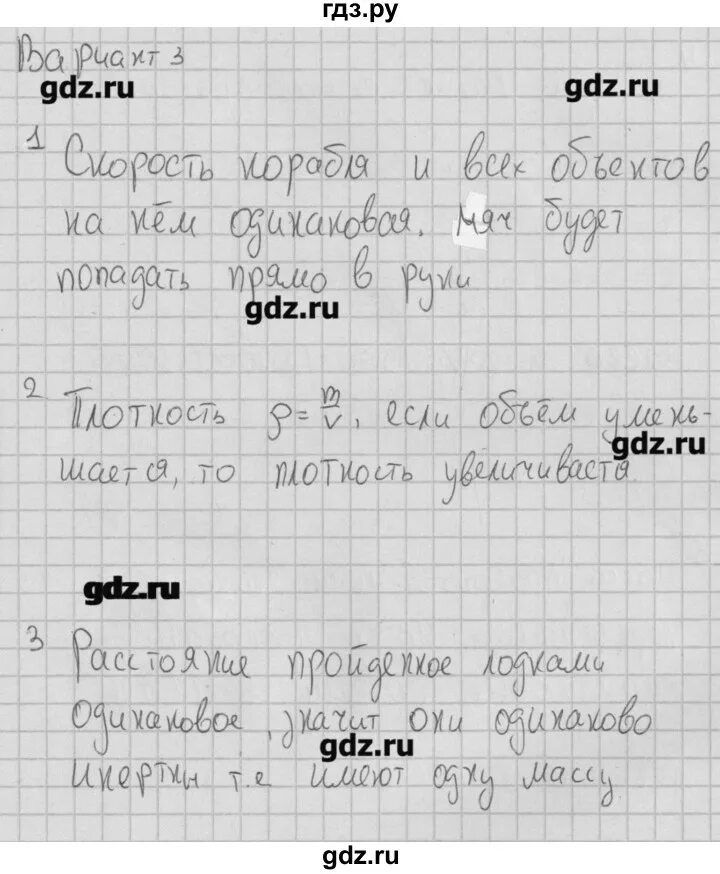 гдз.ру
Вариант 3
gdz.ru
gdz.ru
1 Скорость корабля и всех объектов
на нём одинаковая. Мяч будет
попадать прямо в руки
gdz.ru
2 Плотность ρ = m/v, если объём умень-
gdz.ru
шается, то плотность увеличивастя
gdz.ru
3 Расстояние пройденное лодками
одинаковое, значит они одинаково
gdz.ru
инертны т.е имеют одну массу
gdz.ru